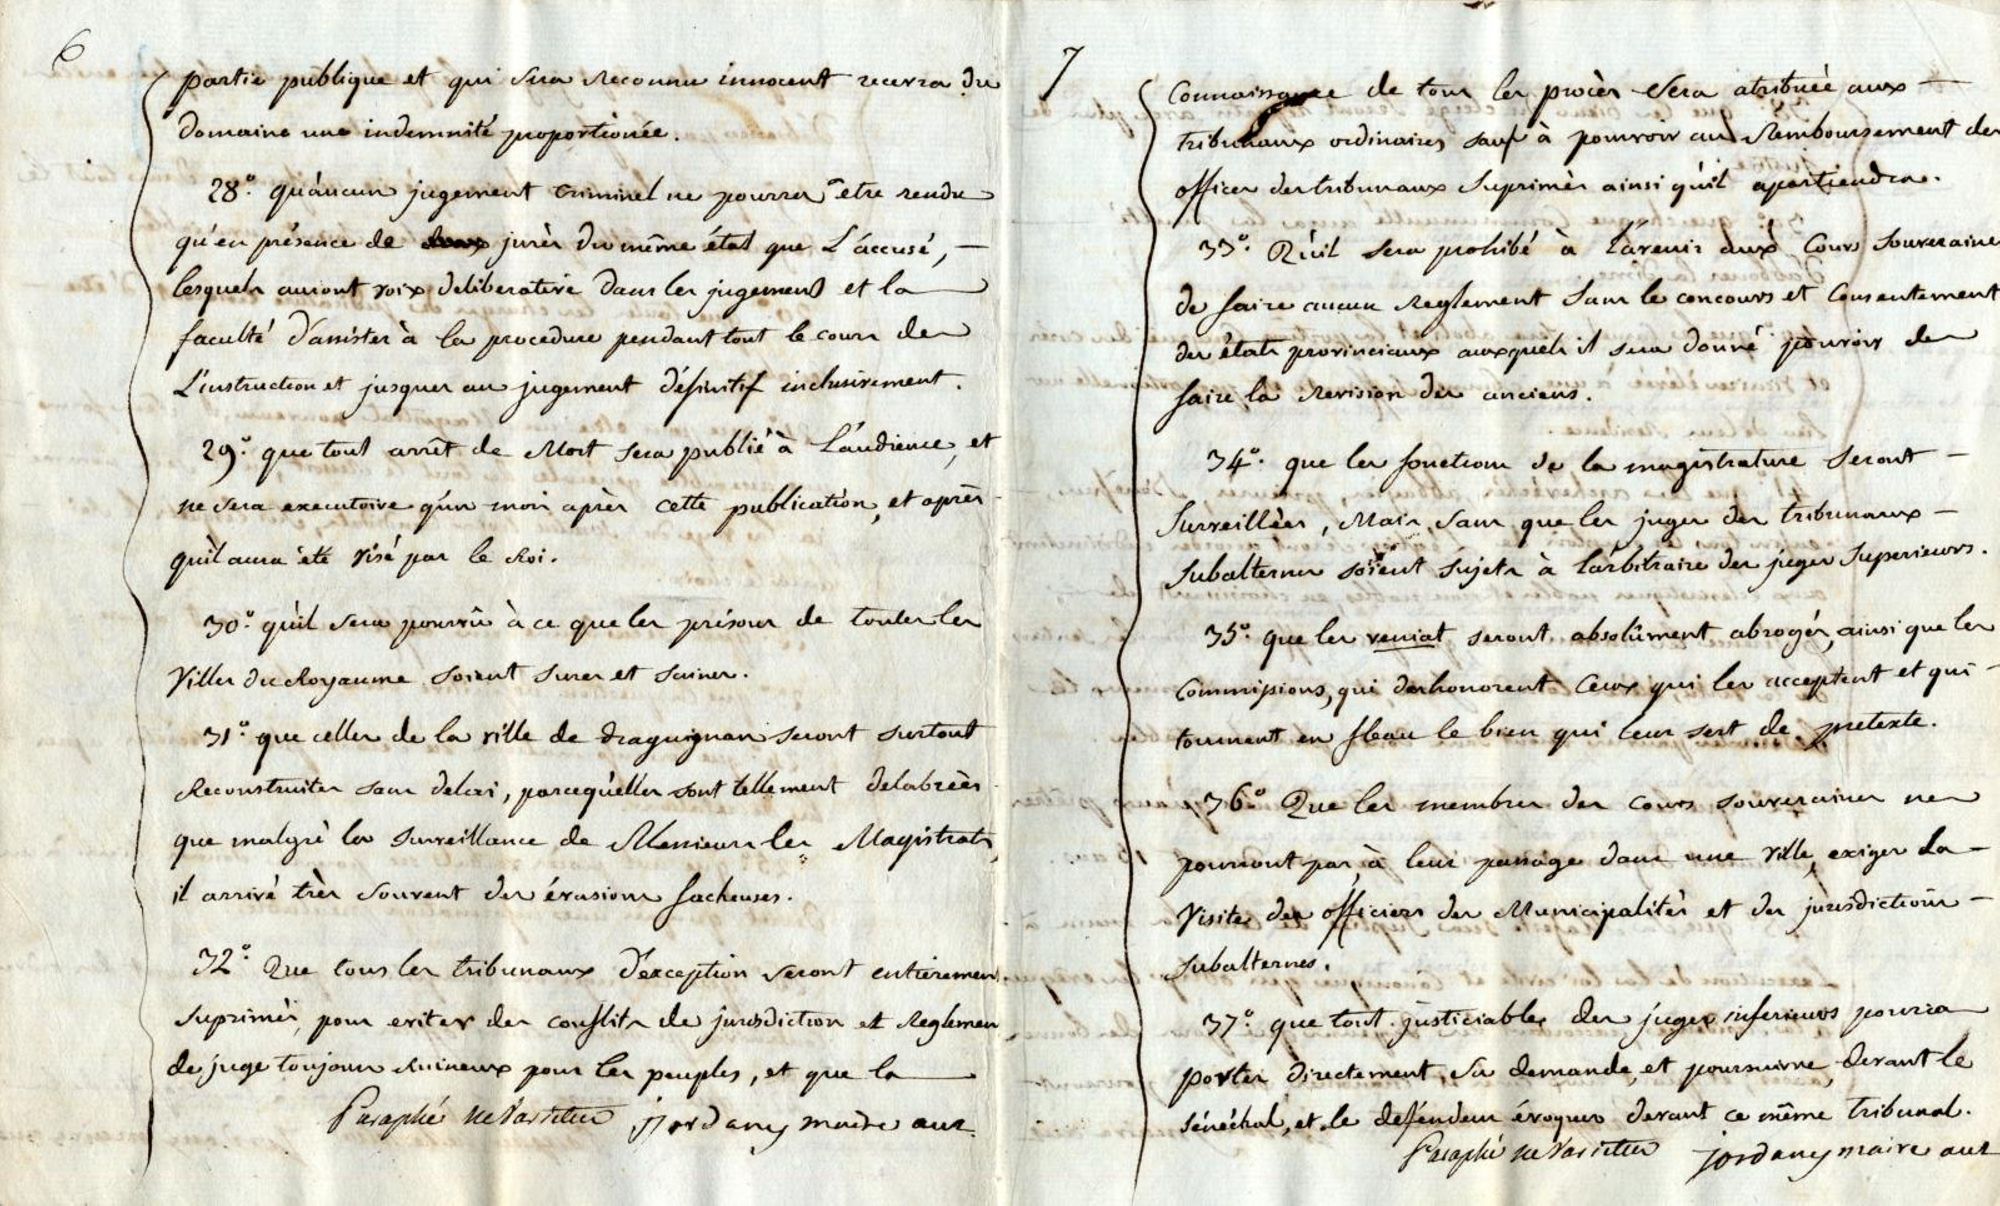 6
partie publique et qui sera reconnu innocent recevra du
domaine une indemnité proportionée.
28.° qu'aucun jugement criminel ne pourra etre rendu
qu'en présence de jurès du même état que L'accusé, —
lesquels auront voix deliberative dans les jugement et la
faculté d'assister à la procedure pendant tout le cours de
L'instruction et jusques au jugement définitif inclusivement.
29.° que tout arrêt de Mort sera publié à L'audience, et
ne sera executoire qu'un mois après cette publication, et après
qu'il aura été visé par le Roi.
30.° qu'il sera pourvû à ce que les prisons de toutes les
Villes du Royaume soient sures et saines.
31.° que celles de la ville de draguignan seront surtout
Reconstruites sans delai, parcequ'elles sont tellement delabreès
que malgrè la surveillance de Messieurs les Magistrats,
il arrivé très souvent des évasions facheuses.
32.° Que tous les tribunaux d'exception seront entieremen
suprimès, pour eviter des conflits de jurisdiction et Reglemen
de juge toujours Ruineux pour les peuples, et que la
Paraphé ne Varietur jordany maire auz
7
Connaissance de tous les procès sera atribuèe aux —
tribunaux ordinaires sauf à pourvoir au Remboursement des
offices des tribunaux suprimès ainsi qu'il apartiendra.
33.° Qu'il sera prohibé à L'avenir aux Cours Souveraines
de faire aucun Reglement sans le concours et Consentement
des états provinciaux auxquels il sera donné pouvoir de
faire la Revision des anciens.
34.° que les fonctions de la magistrature seront —
Surveillèes, Mais sans que les juges des tribunaux —
Subalternes soient sujets à l'arbitraire des juges Superieurs.
35.° que les veniat seront absolûment abrogés, ainsi que les
Commissions, qui deshonorent Ceux qui les acceptent et qui —
tournent en fleau le bien qui leur sert de pretexte.
36.° Que les membres des cours souveraines ne
pourront pas, à leur passage dans une Ville, exiger La —
Visite des officiers des Municipalitès et des jurisdictions —
subalternes.
37.° que tout justiciables des juges inferieurs pourra
porter directement, sa demande, et poursuivre, devant le
sénéchal, et le défendeur évoquer devant ce même tribunal.
Paraphé ne Varietur jordany maire auz